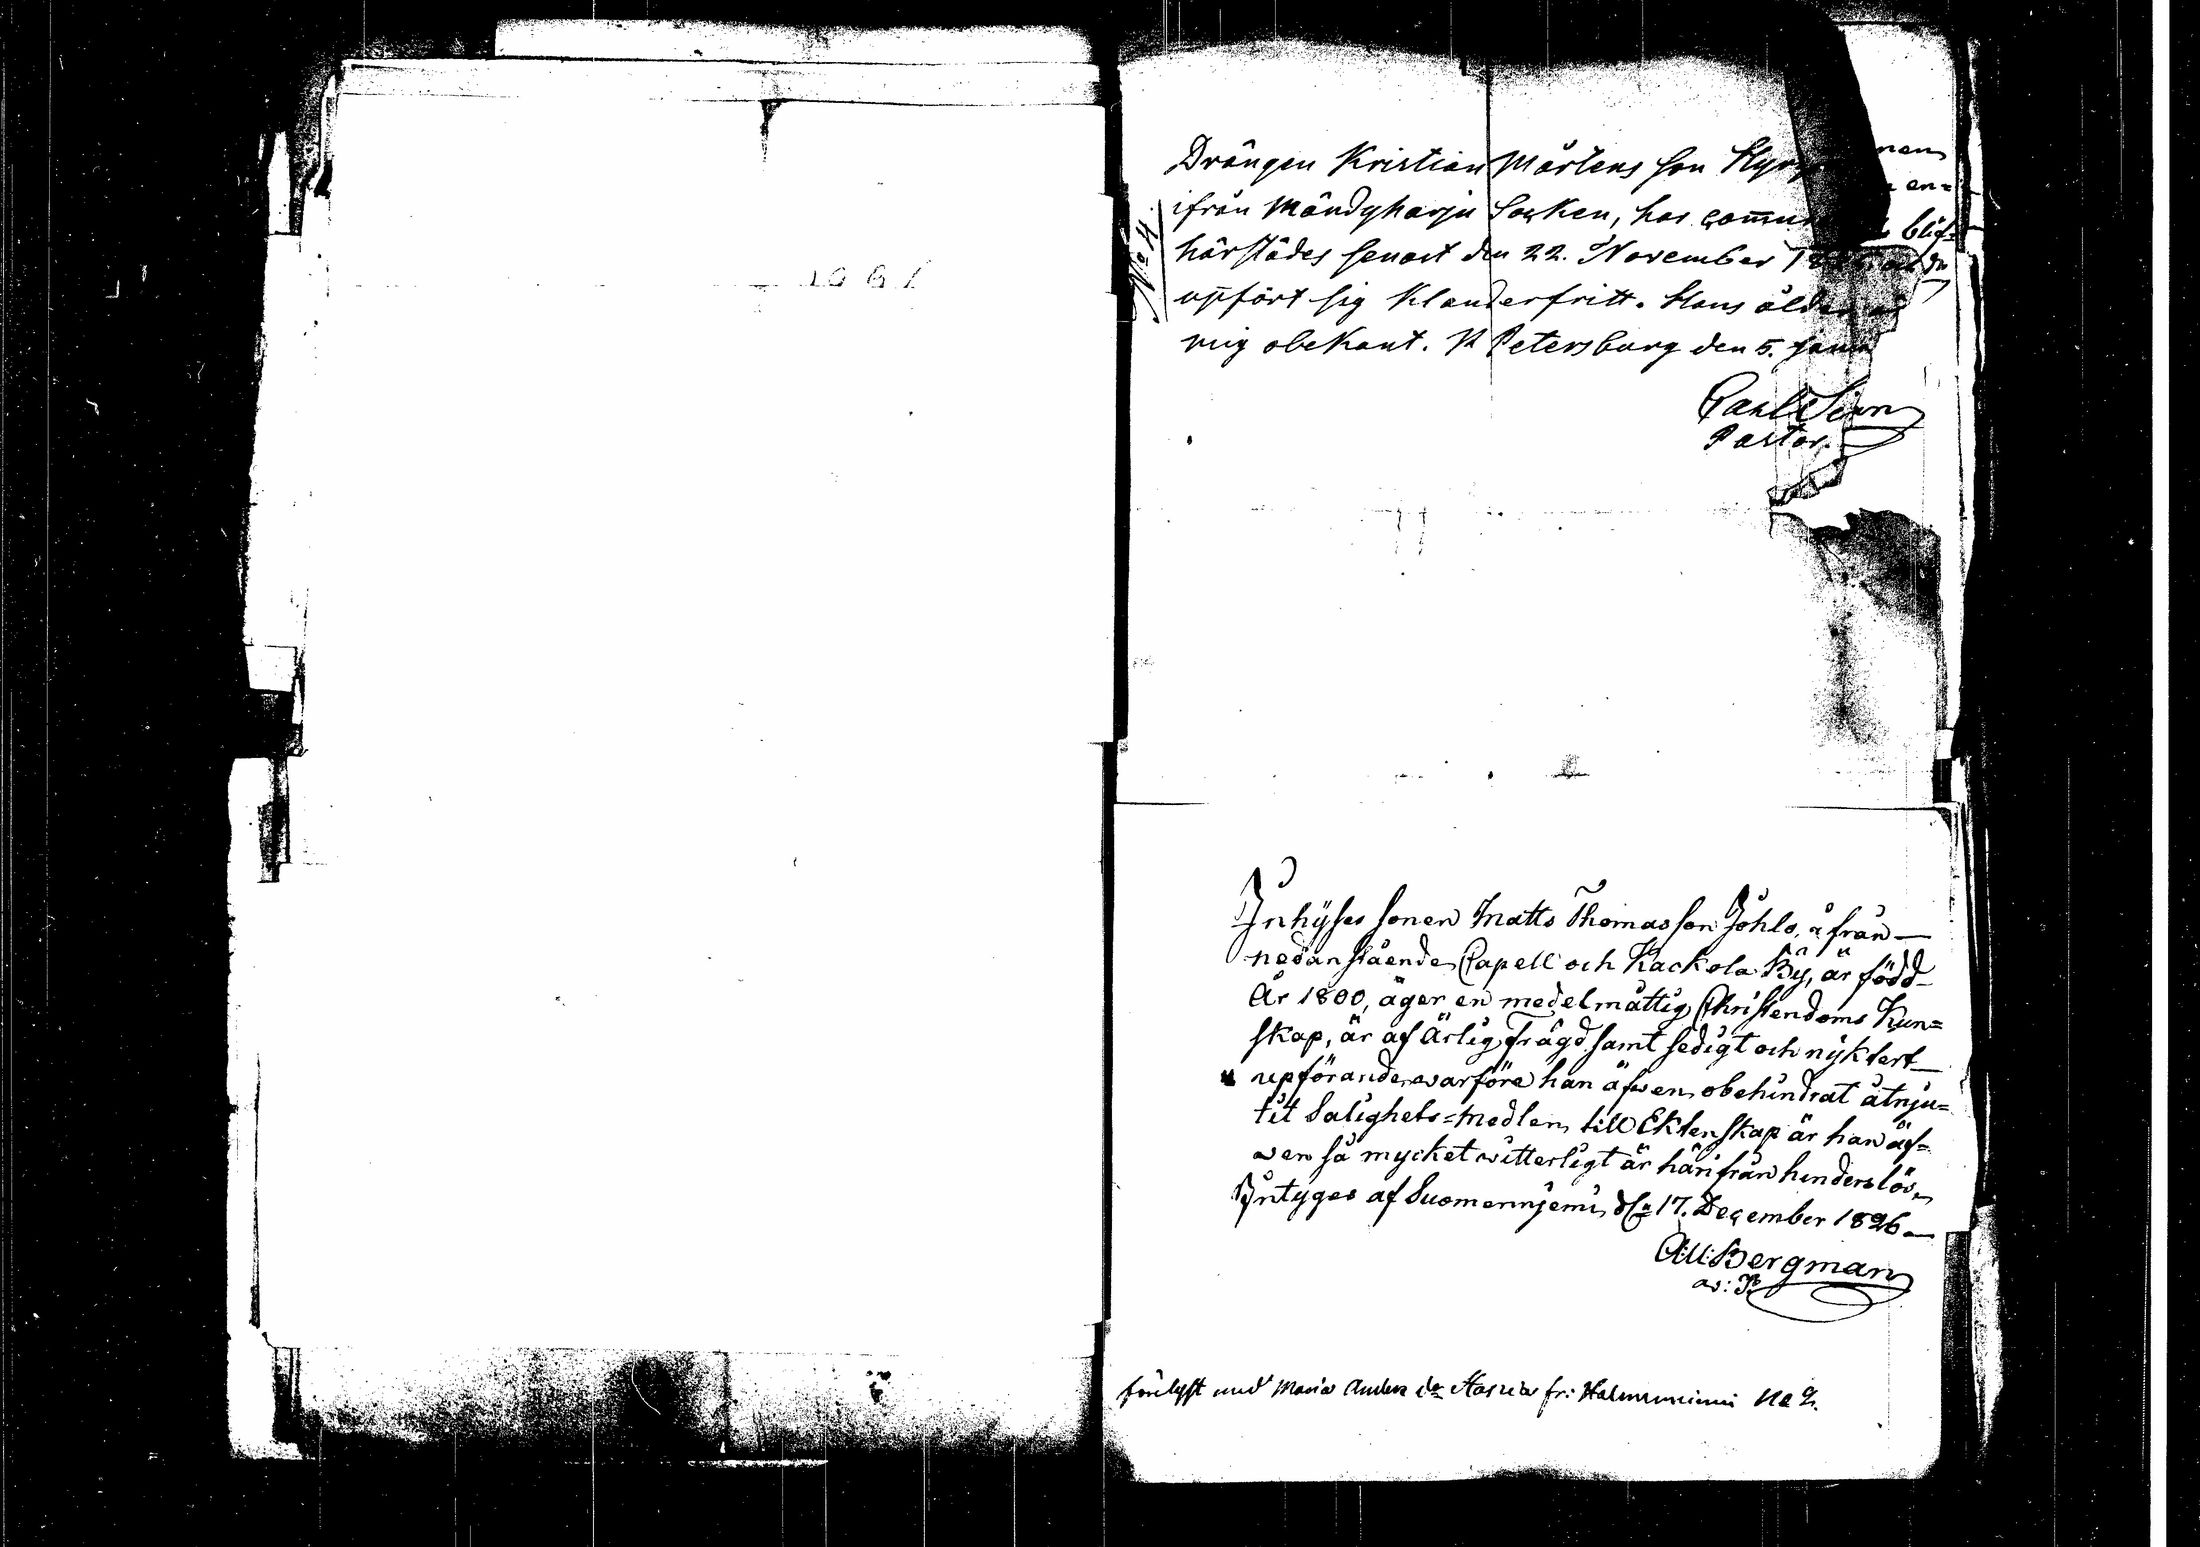 Drängen Kristian Mårtens son
ifrån Mändyharju Socken, har
härstädes senast den 22. November
upfört sig klanderfritt. Hans ålder
mig obekant. St Petersburg den 5.
Pastor.
No 4
Inhyses sonen Matts Thomasson Johlo, ifrån
nedanstående Capell och Kackola By, är född
År 1800, äger en medelmåttig Christendoms Kun=
skap, är af ärlig Frägd samt sedigt och nyktert
upförande warföre han äfwen obehindrat åtnju=
tit Salighets=Medlen, till Ektenskap är han äf=
wen så mycket witterligt är härifrån hinderslös,
Intygas af Suomennjemi d. 17. December 1826
Bergman
förelyst med Maria Anders dr fr: No 2.